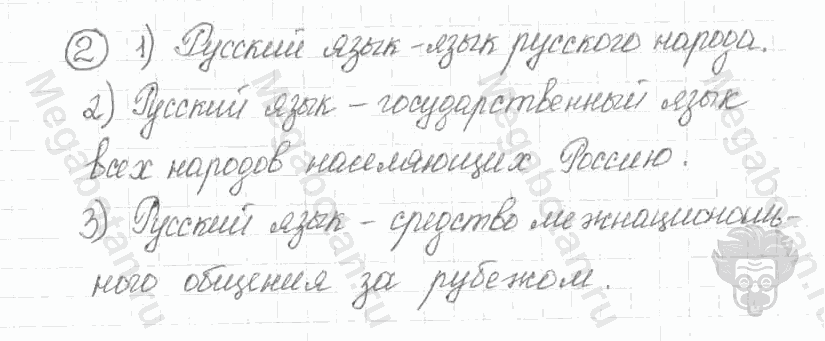 ② 1) Русский язык – язык русского народа.
2) Русский язык – государственный язык
всех народов населяющих Россию.
3) Русский язык – средство межнациональ-
ного общения за рубежом.
Megabotan.ru
Megabotan.ru
Megabotan.ru
Megabotan.ru